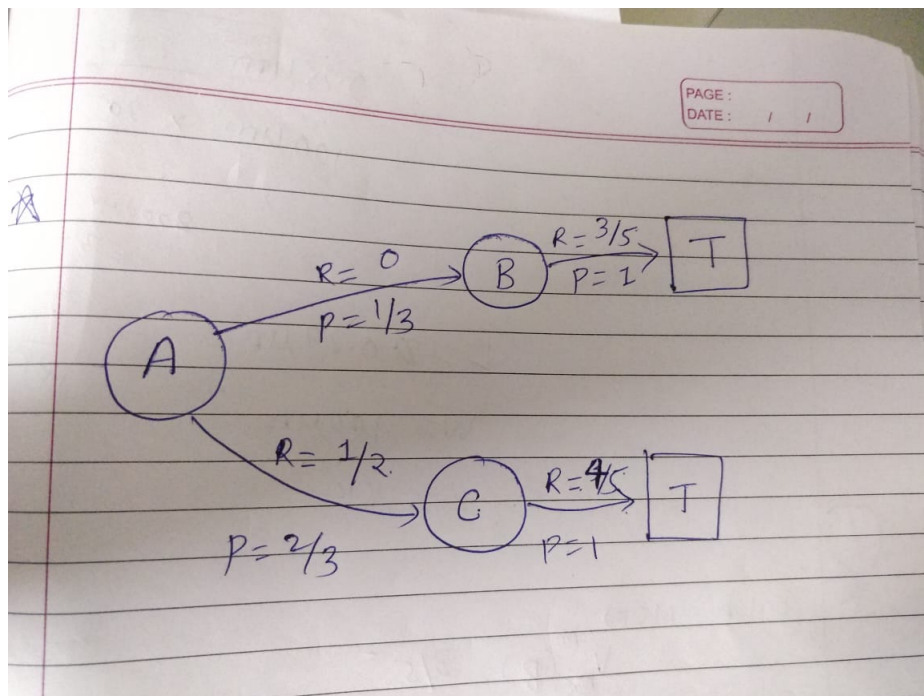 PAGE :
DATE : / /
R = 0
P = 1/3
B
R = 3/5
P = 1
T
A
R = 1/2
P = 2/3
C
R = 4/5
P = 1
T